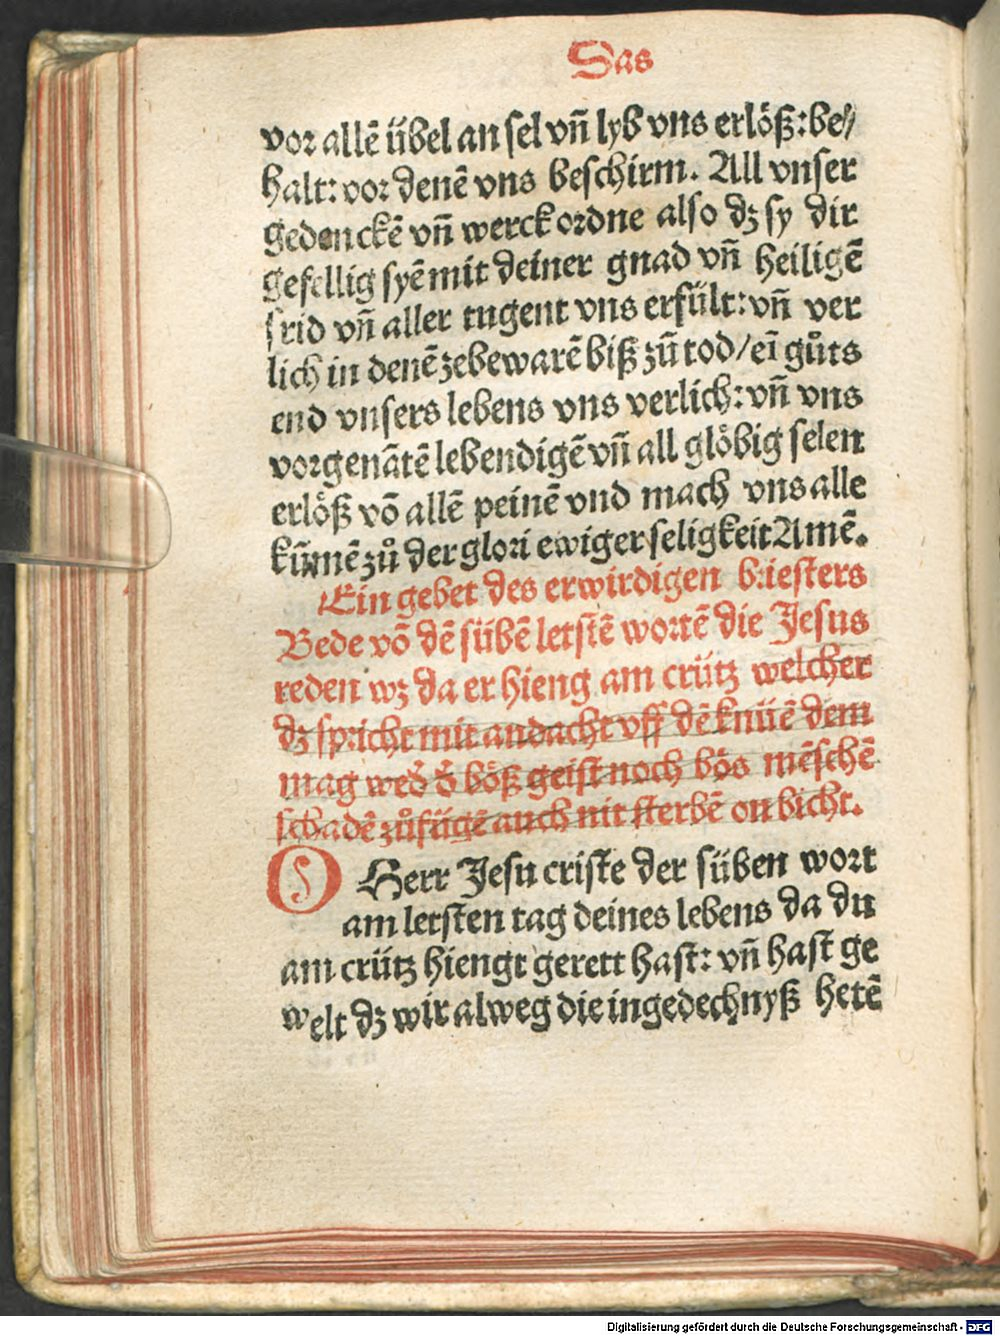 Das
vor allē übel an sel vñ lyb vns erlöß: be⸗
halt: vor denē vns beschirm. All vnser
gedenckē vñ werck ordne also dz sy dir
gefellig syē mit deiner gnad vñ heiligē
frid vñ aller tugent vns erfült: vñ ver
lich in denē zebewarē biß zů tod/ eī gůts
end vnsers lebens vns verlich: vñ vns
vorgenātē lebendigē vñ all glöbig selen
erlöß vō allē peinē vnd mach vns alle
kūmē zů der glori ewiger seligkeit Amē.
Ein gebet des erwirdigen briesters
Bede vō dē sübē letstē wortē die Jesus
reden wz da er hieng am crütz welcher
dz spricht mit andacht vff dē knüē dem
mag wed' d' böß geist noch bös mēschē
schadē zůfügē auch nit sterbē on bicht.
O Herr Jesu criste der süben wort
am letsten tag deines lebens da du
am crütz hiengt gerett hast: vñ hast ge
welt dz wir alweg die in gedechnyß hetē
Digitalisierung gefördert durch die Deutsche Forschungsgemeinschaft - DFG